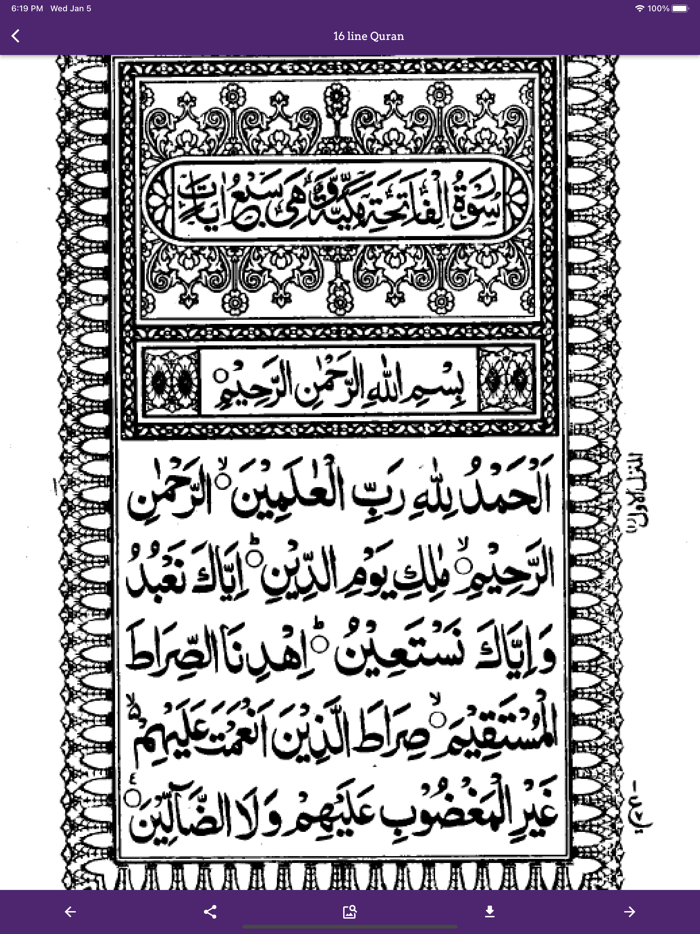 6:19 PM Wed Jan 5
100%
16 line Quran
سُوْرَةُ الْفَاتِحَةِ مَكِّيَّةٌ وَّهِىَ سَبْعُ اٰيَاتٍ
بِسْمِ اللّٰهِ الرَّحْمٰنِ الرَّحِيْمِ ○
اَلْحَمْدُ لِلّٰهِ رَبِّ الْعٰلَمِيْنَ ○ۙ الرَّحْمٰنِ
الرَّحِيْمِ ○ۙ مٰلِكِ يَوْمِ الدِّيْنِ ○ؕ اِيَّاكَ نَعْبُدُ
وَاِيَّاكَ نَسْتَعِيْنُ ○ؕ اِهْدِنَا الصِّرَاطَ
الْمُسْتَقِيْمَ ○ۙ صِرَاطَ الَّذِيْنَ اَنْعَمْتَ عَلَيْهِمْ ۙ۵
غَيْرِ الْمَغْضُوْبِ عَلَيْهِمْ وَلَا الضَّآلِّيْنَ ○
المنزل الاول (١)